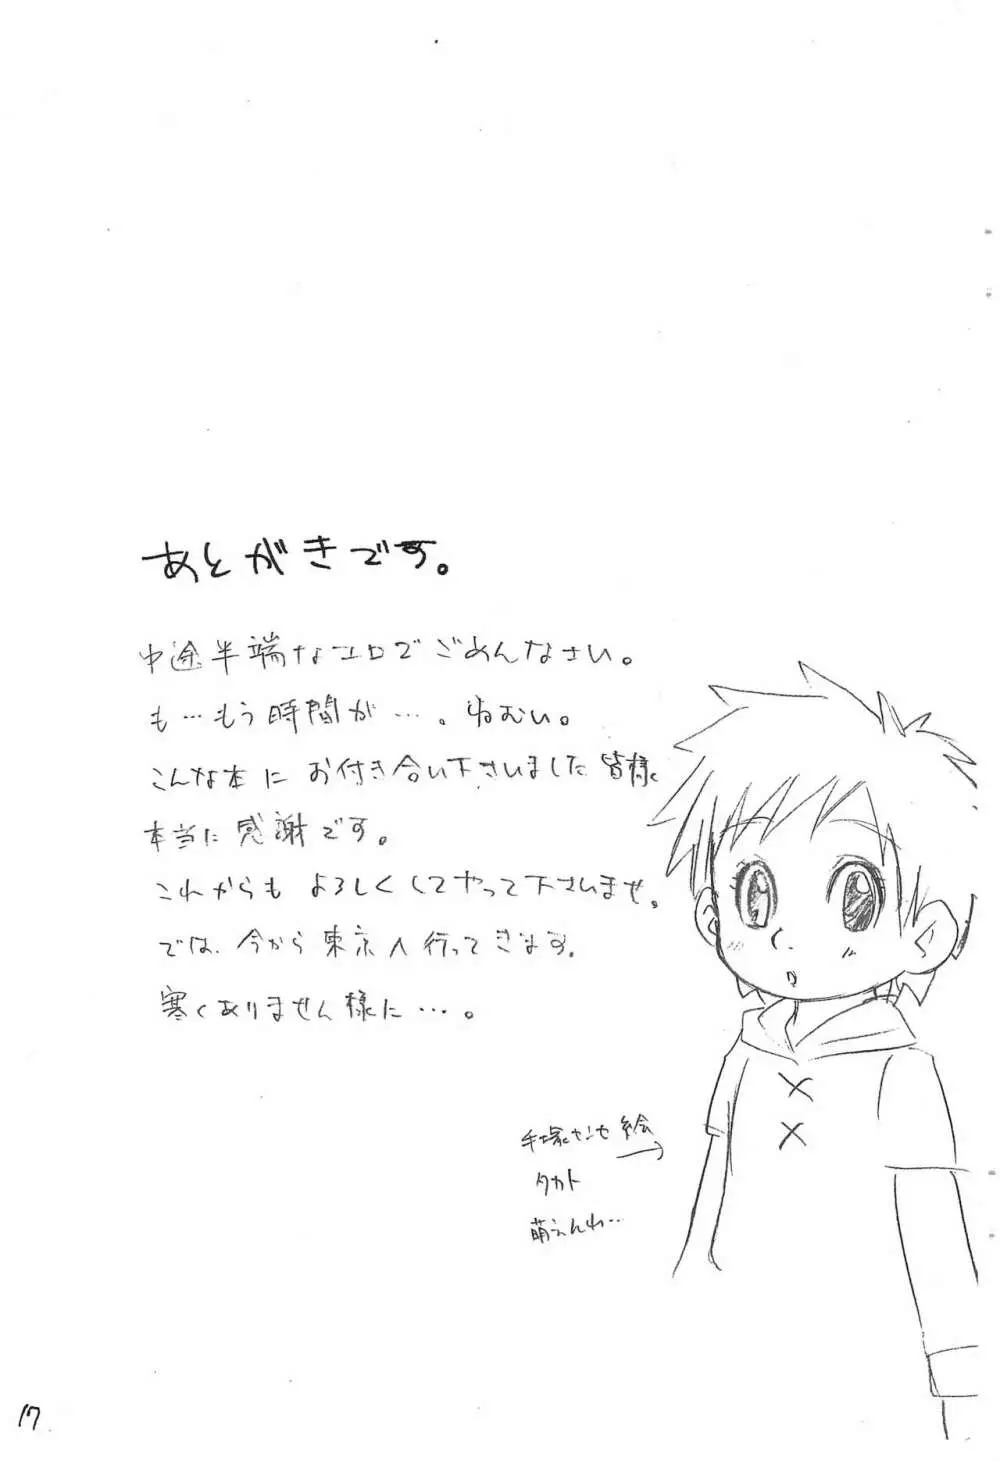 あとがきです。
中途半端なエロでごめんなさい。
も…もう時間が…。ねむい。
こんな本に お付き合い下さいました皆様
本当に感謝です。
これからも よろしくしてやって下さいませ。
では、今から東京へ行ってきます。
寒くありません様に…。
手塚センセ絵→
タカト
萌えんわ…
17